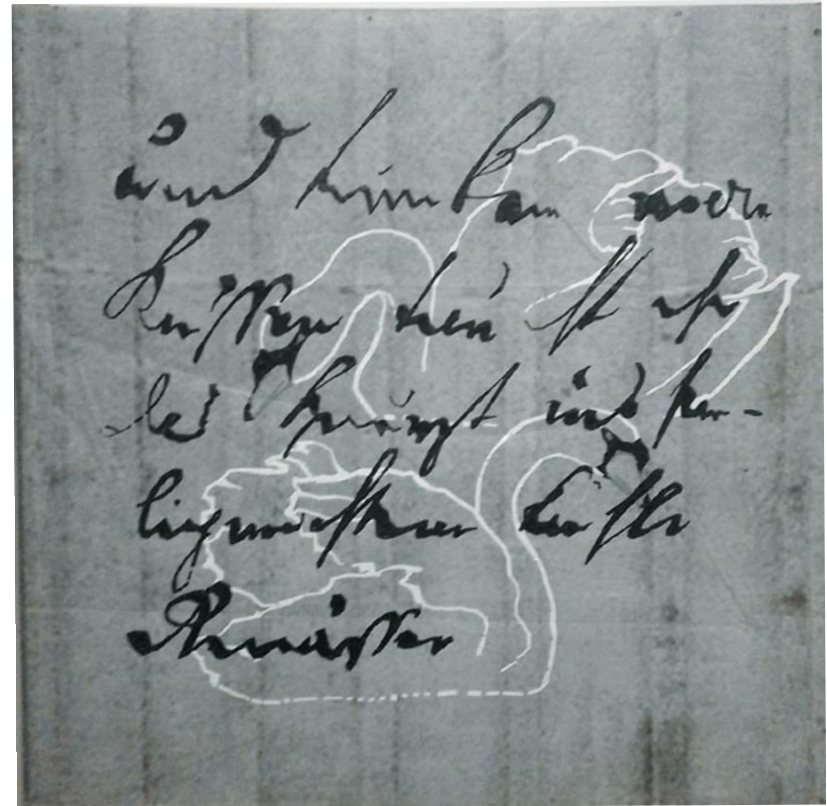 und trunken von
Küssen taucht ihr
das Haupt ins hei-
lignüchterne kühle
Gewässer